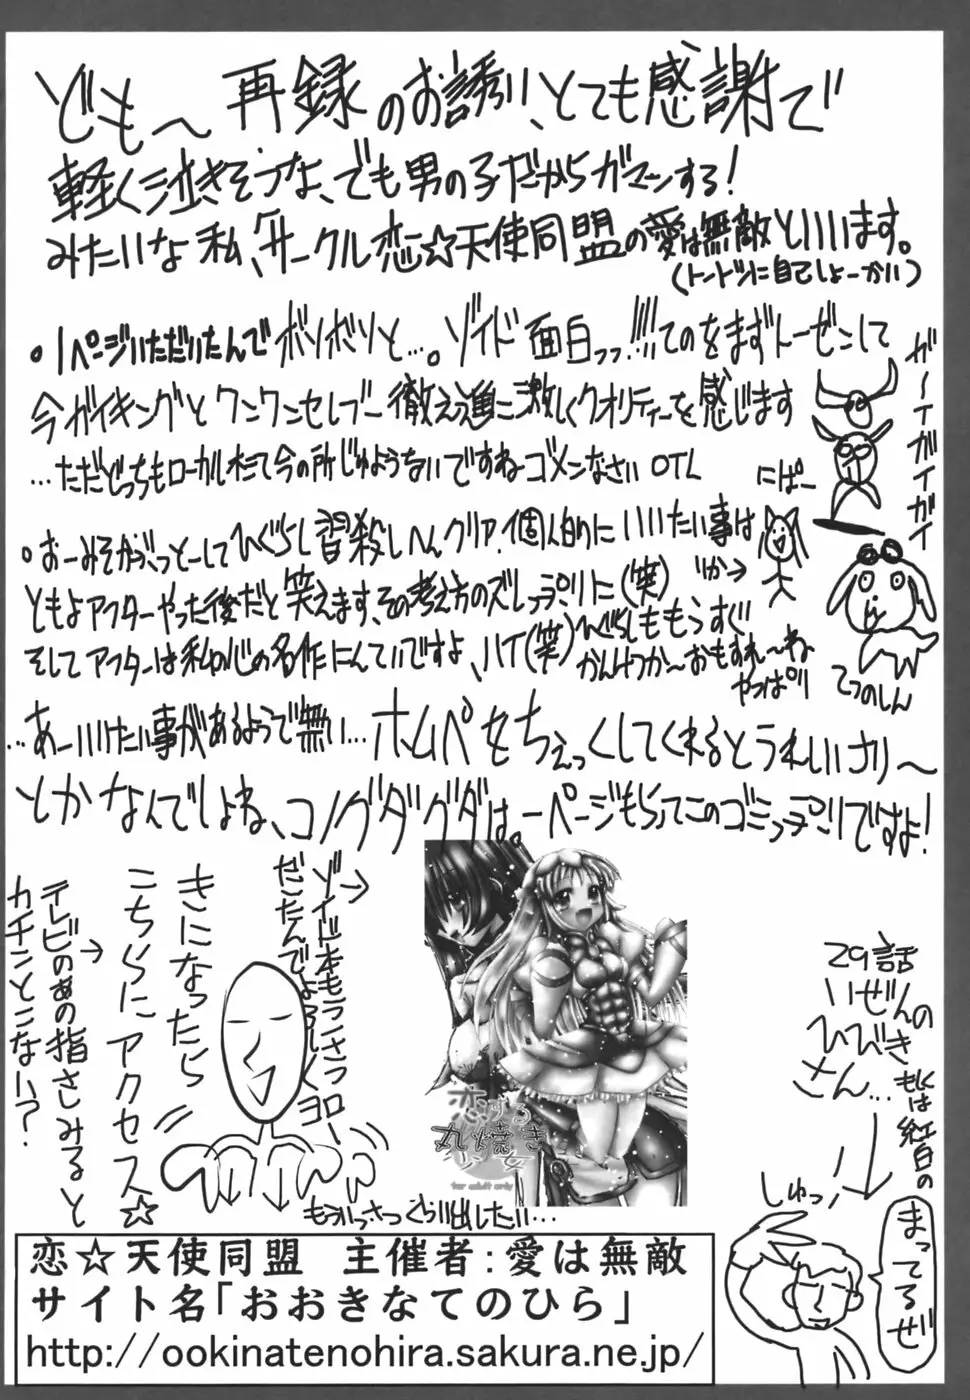 ども〜再録のお誘い、とても感謝で
軽く泣きそうな、でも男の子だからガマンする!
みたいな私、サークル恋☆天使同盟の愛は無敵といいます。
(トートツに自己しょーかい)
・1ページいただいたんでボソボソと…。ゾイド面白っっ!!!!てのをまずトーゼンして
今ガイキングとワンワンセレプー徹え道に激しくクオリティーを感じます
…ただどっちもローカルすぎて今の所じゅようないですねゴメンなさい OTL
・おーみそかぶっとーしてひぐらし皆殺しへんクリア、個人的にいいたい事は
ともよアフターやった後だと笑えます、その考え方のズレっプリに(笑)
そしてアフターは私の心の名作にんていですよ、ハイ(笑)
ひぐらしももうすぐ
かんけつか〜おもすれ〜ね
やっぱり
…あーいいたい事があるようで無い…ホムペをちぇっくしてくれるとうれしいさり〜
とかなんでしょね、コノグダグダは。一ページもらってこのゴミっプリですよ!
ガーイガイガイ
にぱー
りか→
てつのしん
ゾイド本もラこさっ
だこたんでよろしくヨロー
きになったら
こちらにアクセス☆
テレビのあの指さしみると
カチンとこない?
恋する
丸焼き
乙女
for adult only
もういっさつぐらい出したい…
29話
いぜんの
ひびき
さん…
もしくは紅白の
しゅっ!
まってるぜ
恋☆天使同盟 主催者:愛は無敵
サイト名「おおきなてのひら」
http://ookinatenohira.sakura.ne.jp/